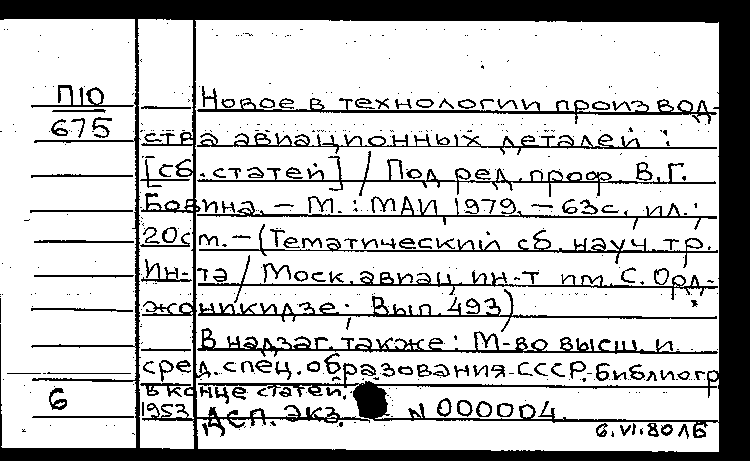 П10
675
Новое в технологии производ-
ства авиационных деталей :
[сб. статей] / Под ред. проф. В.Г.
Бовина. — М. : МАИ, 1979. — 63с., ил.;
20см. — (Тематический сб. науч. тр.
Ин-та / Моск. авиац. ин-т им. С. Орд-
жоникидзе; Вып. 493)
В надзаг. также: М-во высш. и
сред. спец. образования СССР. Библиогр
в конце статей.
6
1953 ДСП. экз. N 000004.
6.VI.80 ЛБ